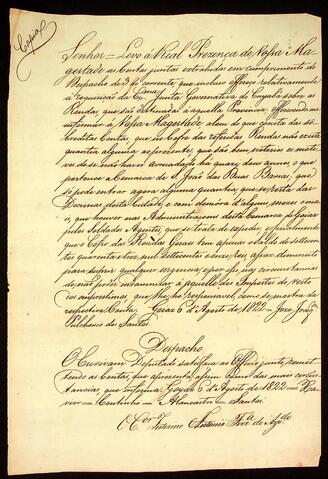 Copia
Senhor = Levo á Real Prezença de Vossa Ma-
gestade as Contas juntas extrahidas em cumprimento do
Despacho de 3 do corrente, que incluso offereço relativamente
á requisição da Exma Junta Governativa de Cuyabá sobre as
Rendas, que são destinadas á aquella Provincia, offerecendo-me
informar á Vossa Magestade alem do que consta das so-
breditas Contas que no Cofre das referidas Rendas não existe
quantia alguma ao presente, que são bem notorios os moti-
vos de se não haver arrecadado ha quazi dous annos, o que
pertence a Comarca de S. João das Duas Barras, que
só pode entrar agora alguma quantia, que se presta das
Decimas desta Cidade, e com demora d'alguns mezes o ma-
is, que houver nas Administraçoens desta Comarca
pelos Soldados Agentes, que se trata de expedir, e finalmente
que o Cofre das Rendas Geraes tem apenas o saldo de sette cen-
tos quarenta e dois mil settecentos e onze reis, aliás diminuto
para suprir qualquer urgencia, e por isso nas circunstancias
de não poder indemnizar á aquelle dos Impostos do resto
dos emprestimos, que lhe he responsavel, como se mostra da
respectiva Conta. Goyaz 6 d'Agosto de 1822 = Joze Joaqm
Pulcherio dos Santos.
Despacho
O Escrivam Deputado satisfaça ao Officio junto, remet-
tendo as Contas, que aprezenta, assim como das mais circuns-
tancias, que informa. Goyaz 6 d'Agosto de 1822 = Xa-
vier = Coutinho = Alencastro = Santos.
O Cor Interino Antonio Ferra de Azdo